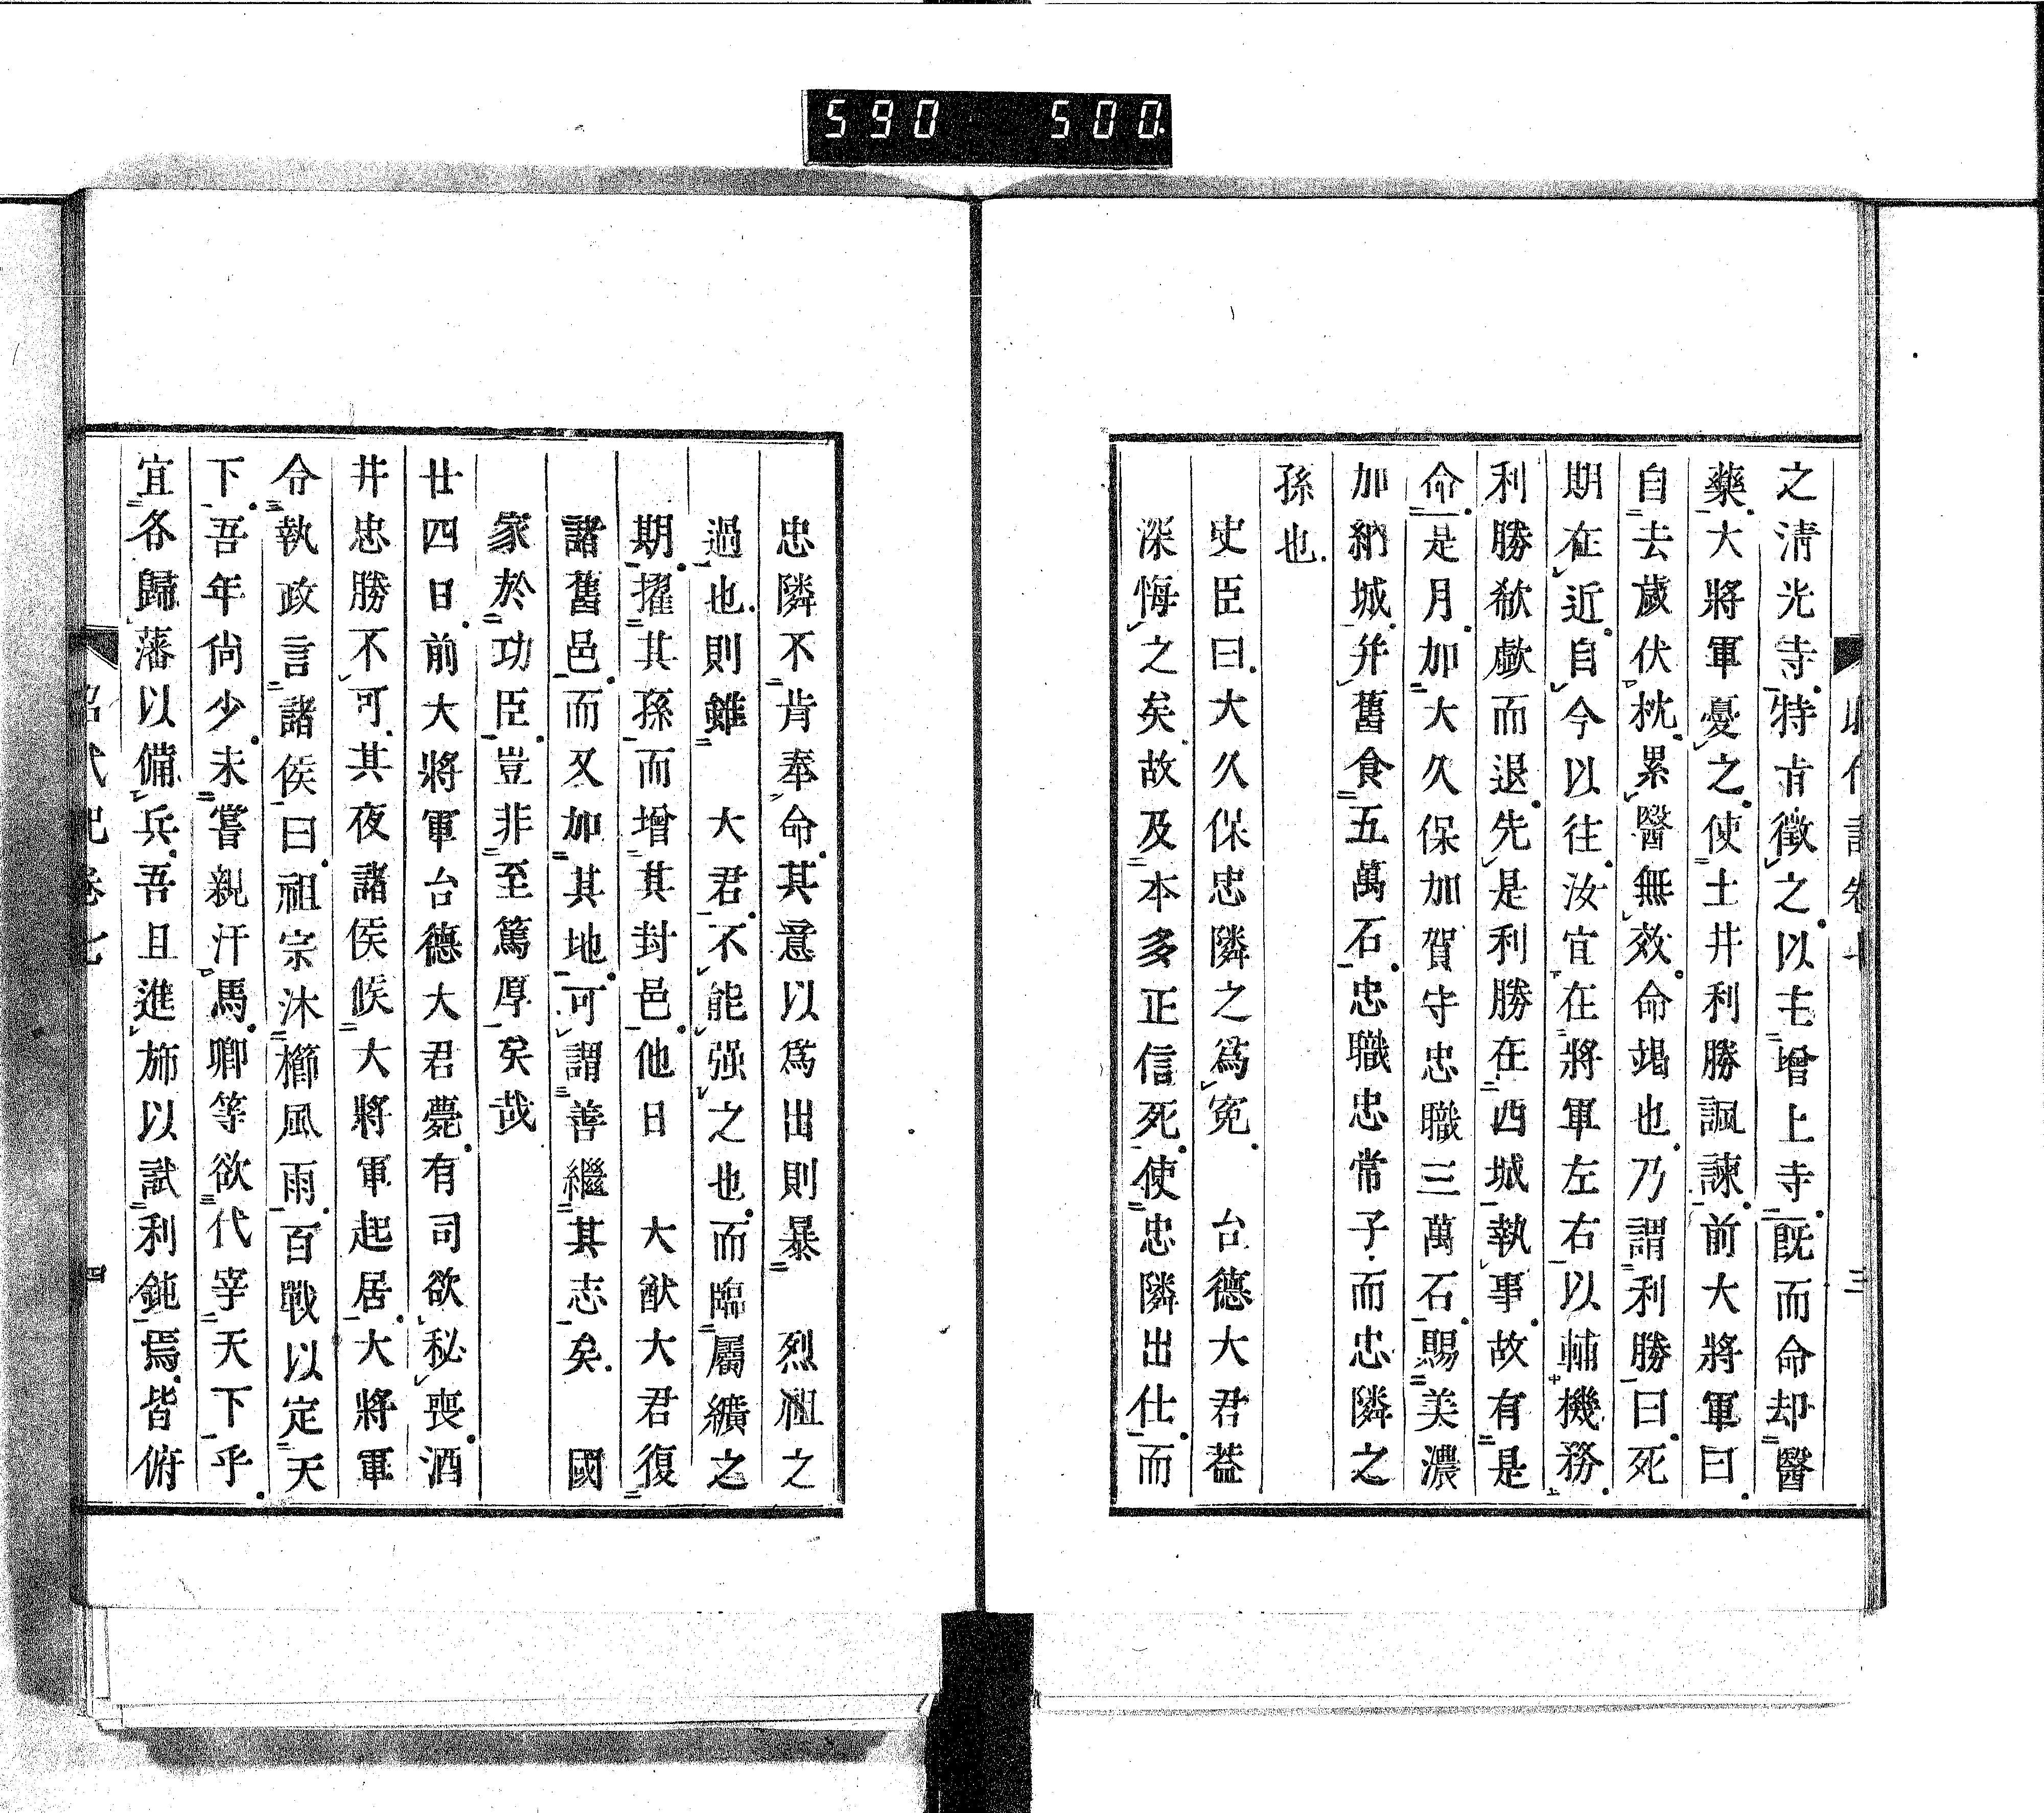 590 500.
之淸光寺特旨徵之以主增上寺旣而命却醫
藥大將軍憂之使土井利勝諷諫前大將軍曰
自去歲伏枕累醫無效命竭也乃謂利勝曰死
期在近自今以往汝宜在將軍左右以輔機務
利勝欷歔而退先是利勝在西城執事故有是
命是月加大久保加賀守忠職三萬石賜美濃
加納城幷舊食五萬石忠職忠常子而忠隣之
孫也
史臣曰大久保忠隣之爲冤 台德大君蓋
深悔之矣故及本多正信死使忠隣出仕而
三
忠隣不肯奉命其意以爲出則暴 烈祖之
過也則雖 大君不能强之也而臨屬纊之
期擢其孫而增其封邑他日 大猷大君復
諸舊邑而又加其地可謂善繼其志矣 國
家於功臣豈非至篤厚矣哉
廿四日前大將軍台德大君薨有司欲秘喪酒
井忠勝不可其夜諸侯候大將軍起居大將軍
令執政言諸侯曰祖宗沐櫛風雨百戰以定天
下吾年尙少未嘗親汗馬卿等欲代宰天下乎
宜各歸藩以備兵吾且進斾以試利鈍焉皆俯
武記卷七
四